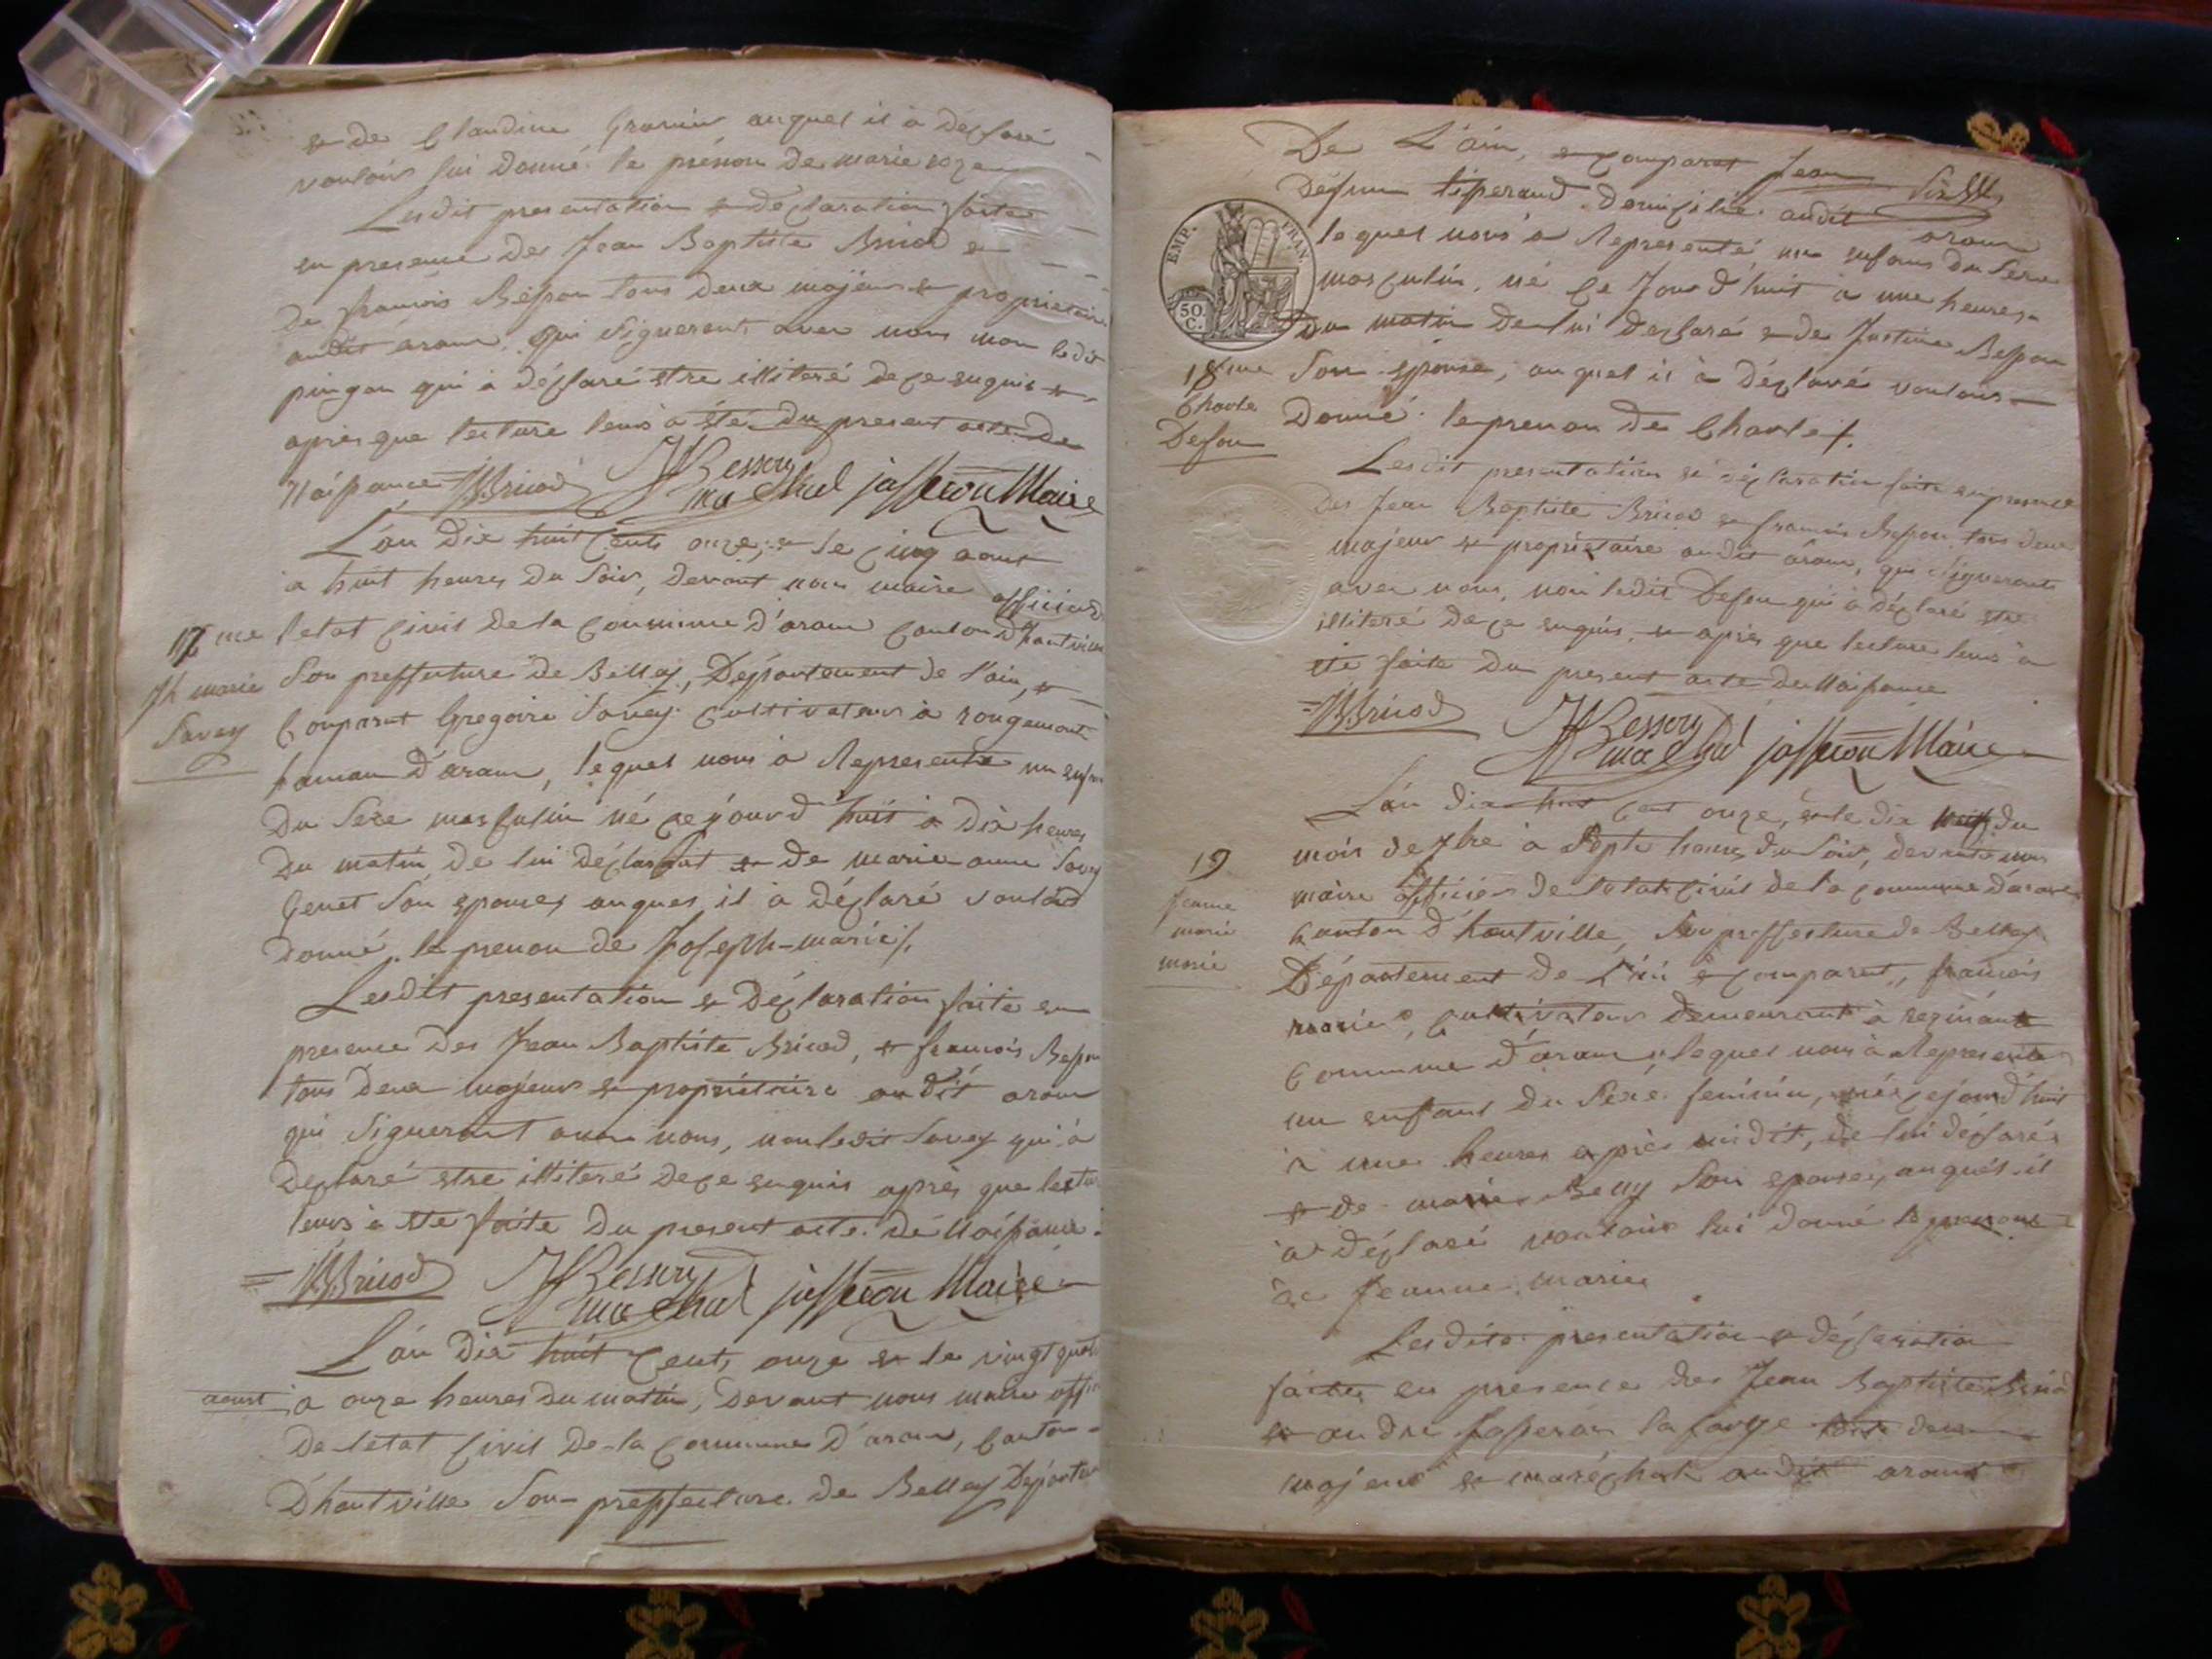 & de Claudine auquel il à déclaré
vouloir lui donné le prénom de marie
Lesdit presentation & declaration faites
en presence des Jean Baptiste Bricod &
de francois tous deux majeur & proprietair
audit aranc, qui signeront, avec nous non ledit
pingon qui à déclaré estre illiteré de ce enquis &
après que lecture leurs à été du present acte de
Naissance JBBricod jasseron Maire
L'an dix huit cents onze, & le cinq aoust
a huit heures du soir, devant nous maire officier de
17 me
l'etat civil de la commune d'aranc canton d'hautville
Jh marie
Savey
Sou preffecture de Belley, Département de l'ain, &
Comparut Gregoire Savey cultivateur à rougemont
hamau d'aranc, lequel nous à Representé un enfan
Du Sexe masculin né cejourd huit à dix heures
Du matin de lui déclarant & de marie anne Savey
Genet Son epouse, auquel il à déclaré vouloir
Donné le prenon de Joseph-marie/.
Lesdit presentation & Déclaration faite en
presence des Jean Baptiste Bricod, & francois
tous deux majeur & propriétaire audit aranc
qui Signeront avec nous, non ledit Savey qui à
Declaré estre illiteré de ce enquis après que lectur
leurs à eté faite du present acte de Naissance.
JBBricod jasseron Maire
L'an dix huit cents onze & le vingt quatr
aoust
a onze heures du matin, devant nous maire offi
De letat civil de la commune d'aranc, canton
D'hautville Sou-preffecture de Belley Départem
De L'ain, & comparut Jean
Defour domicilié audit aranc
EMP. FRAN
50 C.
lequel nous à Representé, un enfans du Sexe
masculin, né ce Jourd'huit à une heures
du matin de lui déclaré & de Justine
18 me
Charle
Defour
Son epouse, auquel il à déclaré vouloir
Donné le prenon de Charle/.
Lesdit presentation & déclaration faite en presence
des Jean Baptiste Bricod & francois tous deux
majeur & propriétaire audit aranc, qui Signeront
avec nous, non ledit Defour qui à déclaré estre
illiteré de ce enquis, & après que lecture leurs à
eté faite du present acte de Naissance
JBBricod jasseron Maire
L'an dix huit cent onze, & le dix neuf du
mois de 7bre à Septe heures du Soir, devant nous
19
jeanne
marie
marie
maire officier de letat civil de la commune d'aranc
Canton d'hautville, Sou preffecture de Belley
Département de L'ain & comparut, francois
marie, cultivateur demeurant à
Commune d'aranc, lequel nous à Representé
un enfans du Sexe feminin, née cejourd'huit
à une heures après midit, de lui déclaré
& de marie Son epouse, auquel il
a déclaré vouloir lui donné le prenon
de Jeanne marie
Lesdite presentation & déclaration
faites en presence des Jean Baptiste Bricod
& andré la forge tous deux
majeur & maréchal audit aranc